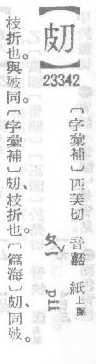 【】
23342
〔字彙補〕匹美切 音嚭 紙上聲
ㄆㄧˇ pii
枝折也。與同。〔字彙補〕、枝折也。〔篇海〕、同。